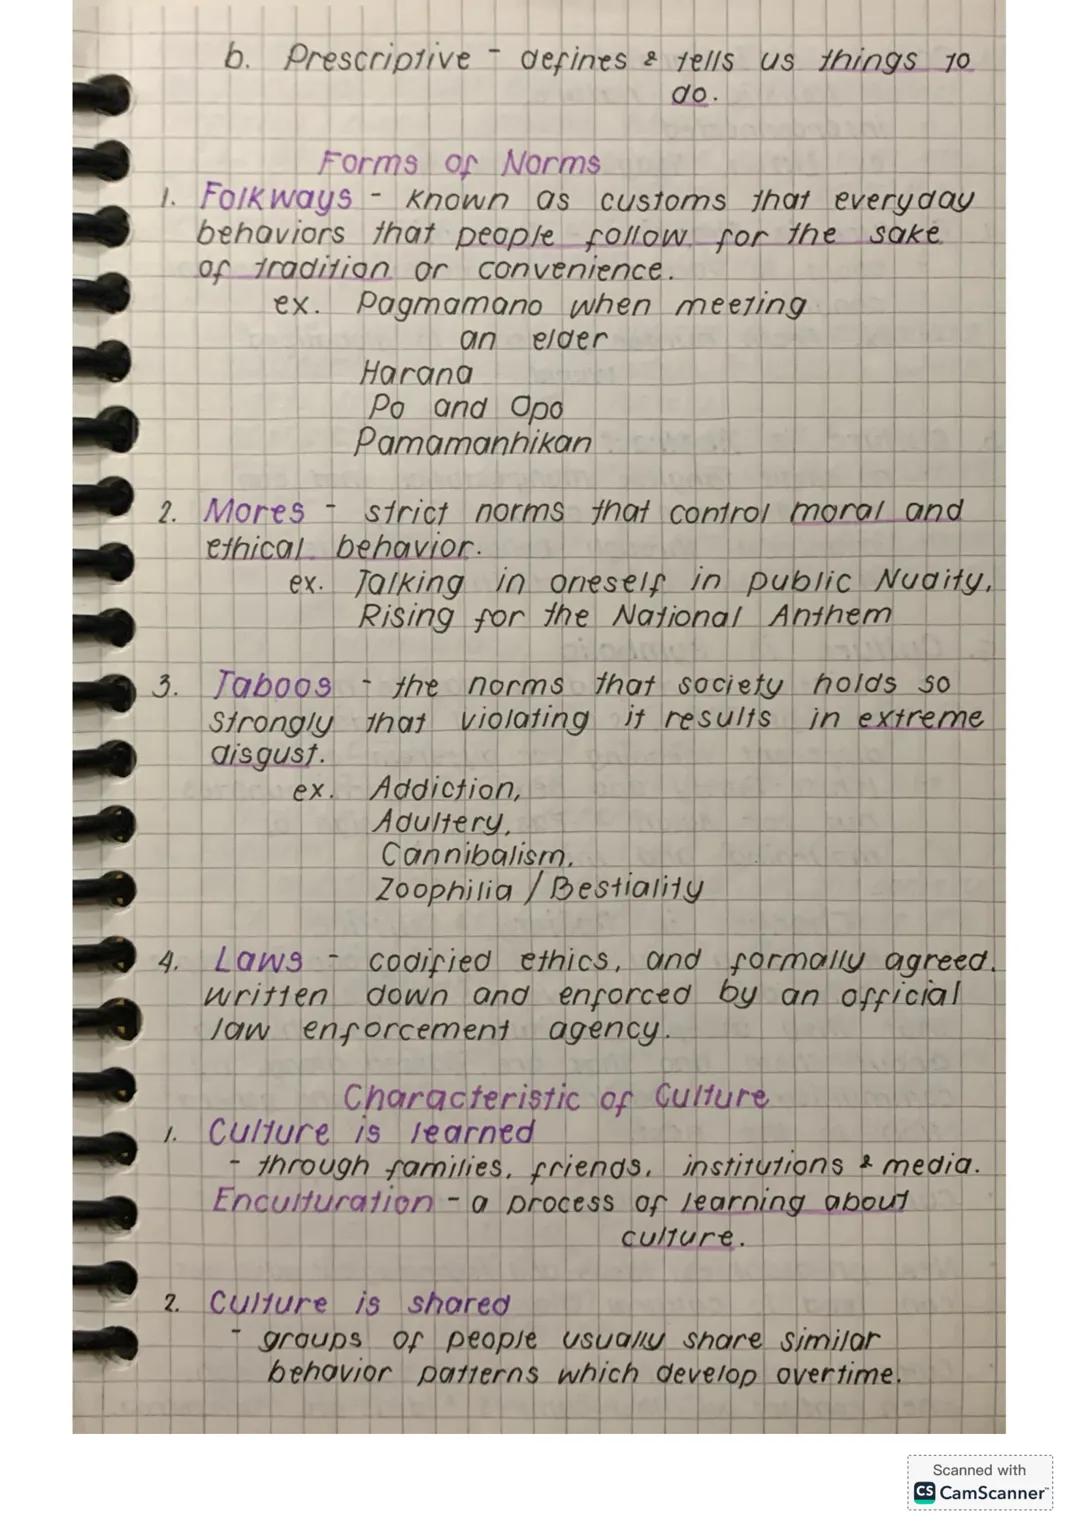 b. Prescriptive - defines & tells us things to
do.
Forms of Norms
1. Folkways - known as customs that everyday
behaviors that people follow for the sake
of tradition or convenience.
ex. Pagmamano when meeting
an elder
Harana
Po and Opo
Pamamanhikan
2. Mores - strict norms that control moral and
ethical behavior.
ex. Talking in oneself in public Nudity,
Rising for the National Anthem
3. Taboos - the norms that society holds so
strongly that violating it results in extreme
disgust.
ex. Addiction,
Adultery,
Cannibalism,
Zoophilia / Bestiality
4. Laws - codified ethics, and formally agreed.
written down and enforced by an official
law enforcement agency.
Characteristic of Culture
1. Culture is learned
- through families, friends, institutions & media.
Enculturation - a process of learning about
culture.
2. Culture is shared
- groups of people usually share similar
behavior patterns which develop overtime.
Scanned with
CS CamScanner